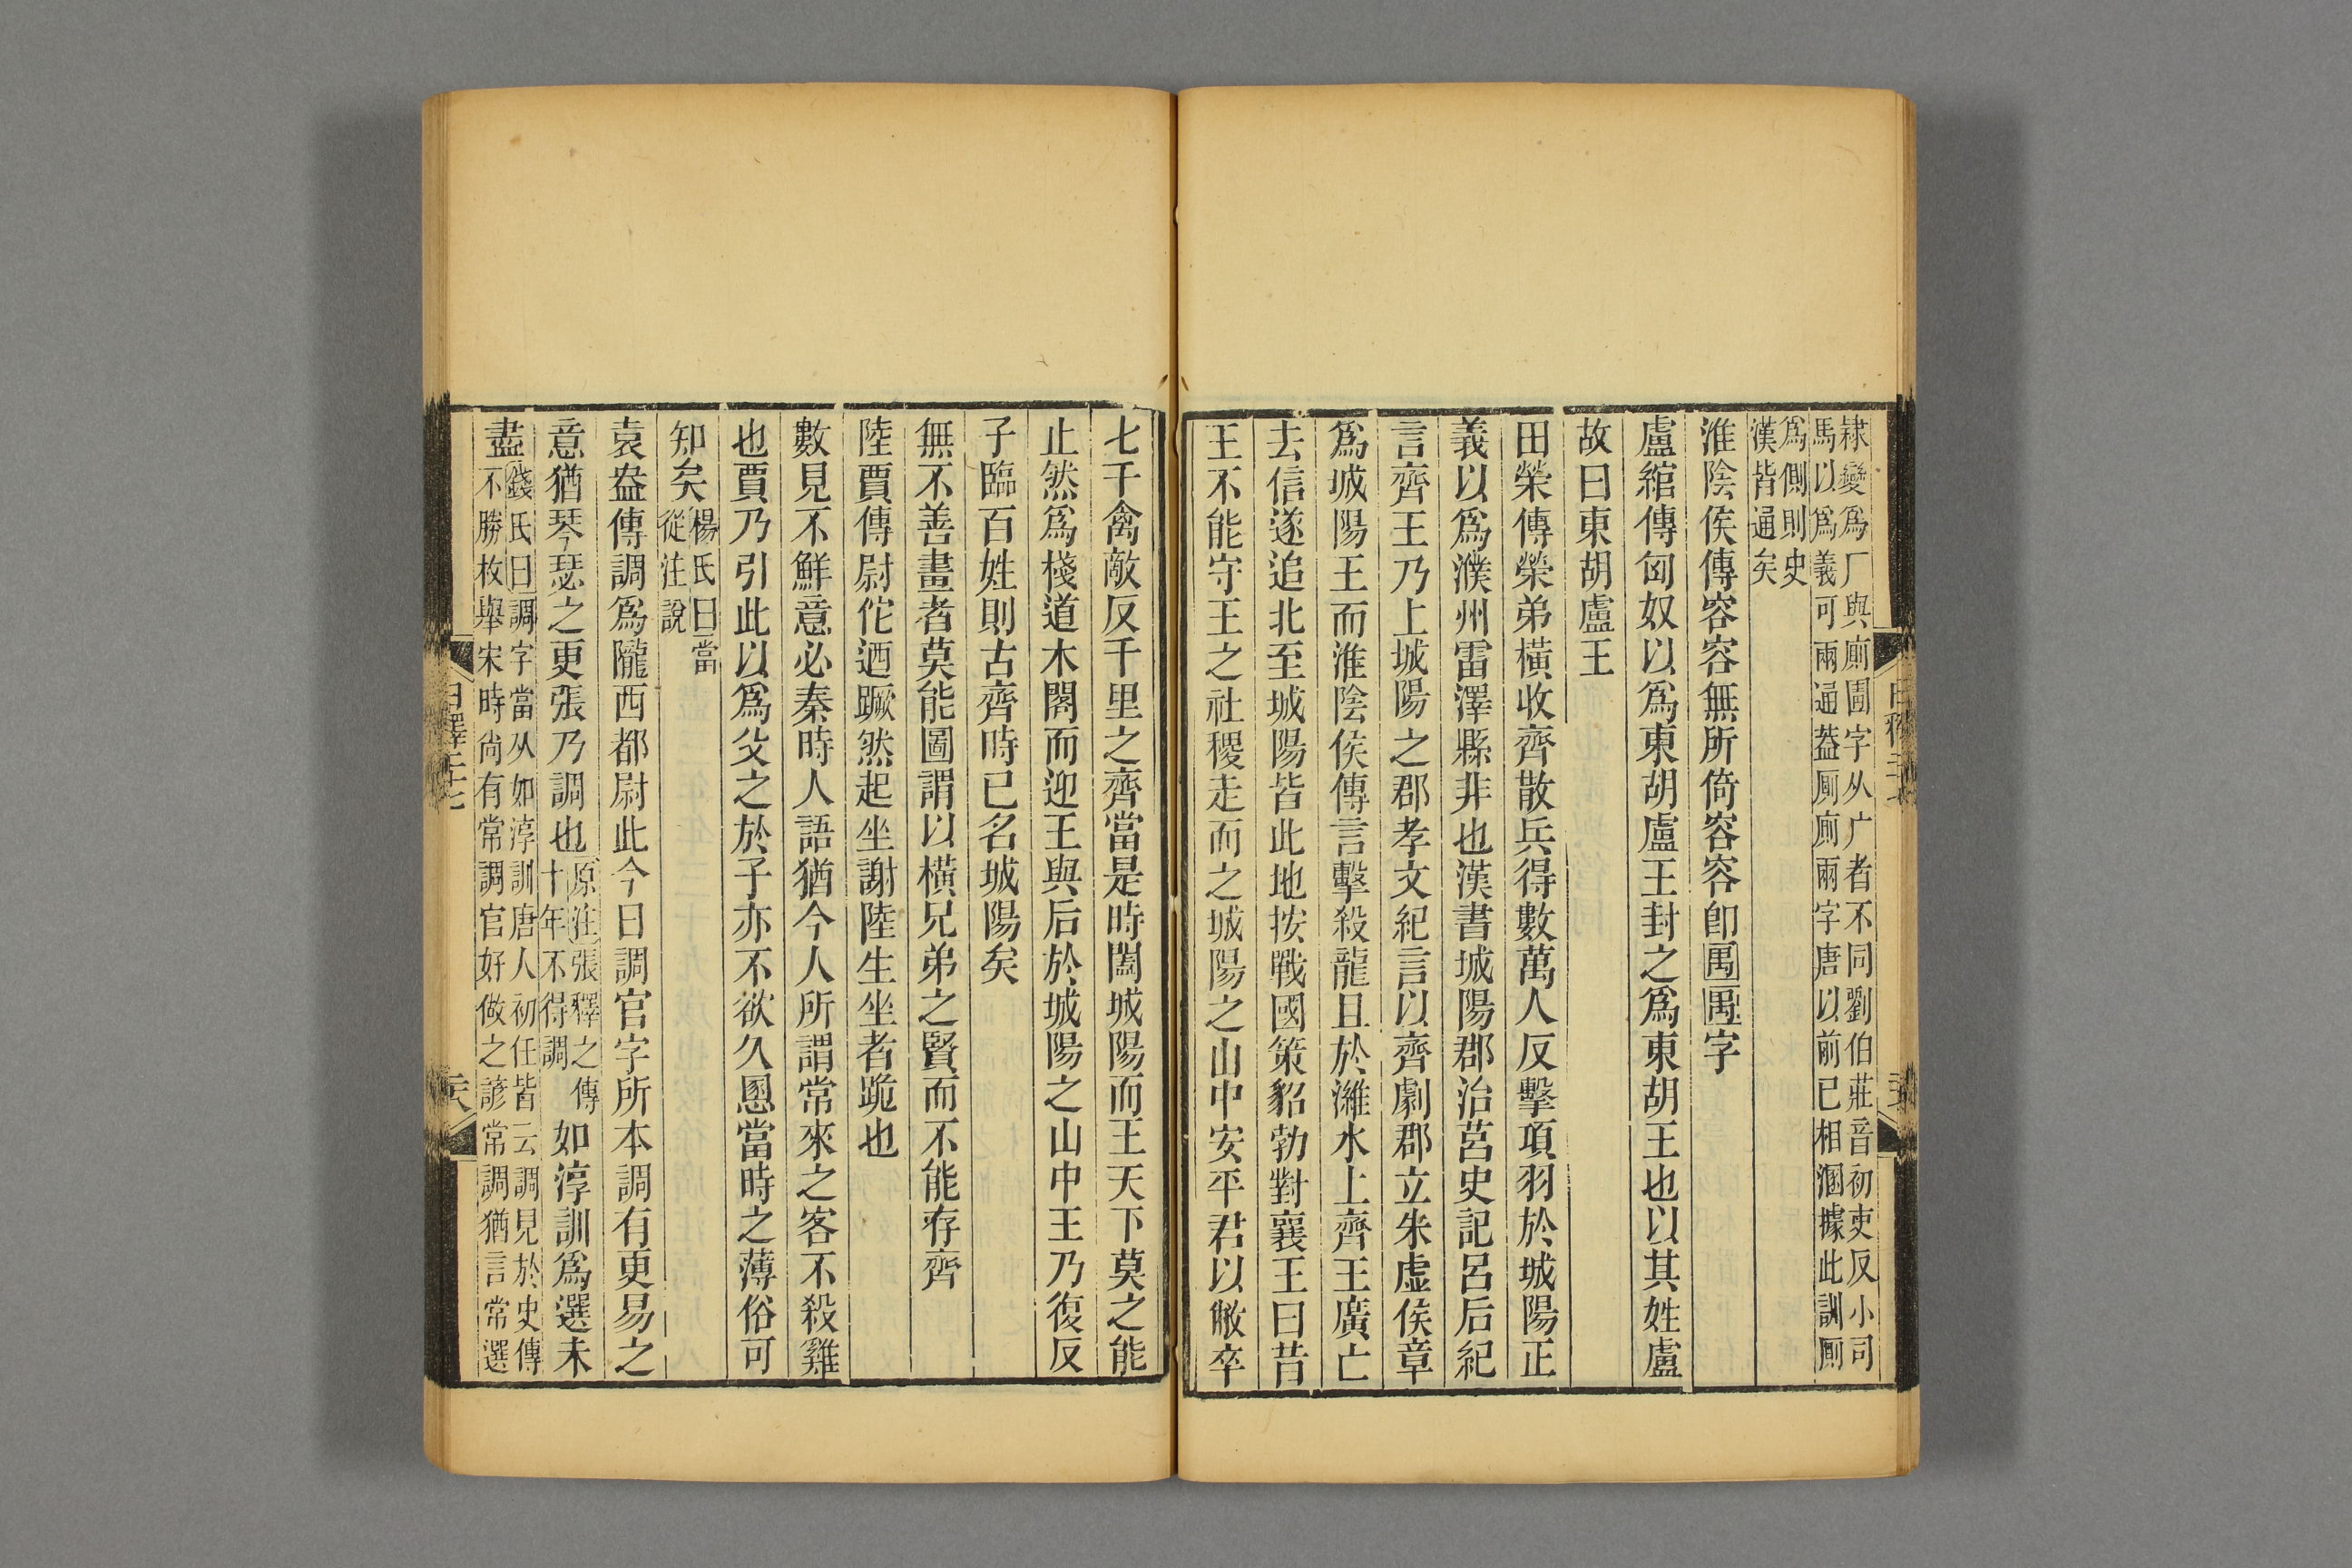 隸變爲厂與廁圊字从广者不同劉伯莊音初吏反小司
馬以爲義可兩通葢厠廁兩字唐以前已相溷據此訓厠
爲側則史
漢皆通矣
淮陰侯傳容容無所倚容容卽禺禺字
盧綰傳匈奴以爲東胡盧王封之爲東胡王也以其姓盧
故曰東胡盧王
田榮傳榮弟橫收齊散兵得數萬人反擊項羽於城陽正
義以爲濮州雷澤縣非也漢書城陽郡治莒史記呂后紀
言齊王乃上城陽之郡孝文紀言以齊劇郡立朱虛侯章
爲城陽王而淮陰侯傳言擊殺龍且於濰水上齊王廣亡
去信遂追北至城陽皆此地按戰國策貂勃對襄王曰昔
王不能守王之社稷走而之城陽之山中安平君以敝卒
七千禽敵反千里之齊當是時闔城陽而王天下莫之能
止然爲棧道木閣而迎王與后於城陽之山中王乃復反
子臨百姓則古齊時已名城陽矣
無不善畫者莫能圖謂以橫兄弟之賢而不能存齊
陸賈傳尉佗迺蹶然起坐謝陸生坐者跪也
數見不鮮意必秦時人語猶今人所謂常來之客不殺雞
也賈乃引此以爲父之於子亦不欲久慁當時之薄俗可
知矣楊氏曰當
從注說
袁盎傳調爲隴西都尉此今日調官字所本調有更易之
意猶琴瑟之更張乃調也原注張釋之傳
十年不得調如淳訓爲選未
盡錢氏曰調字當从如淳訓唐人初任皆云調見於史傳
不勝枚舉宋時尚有常調官好做之諺常調猶言常選
日釋二十七